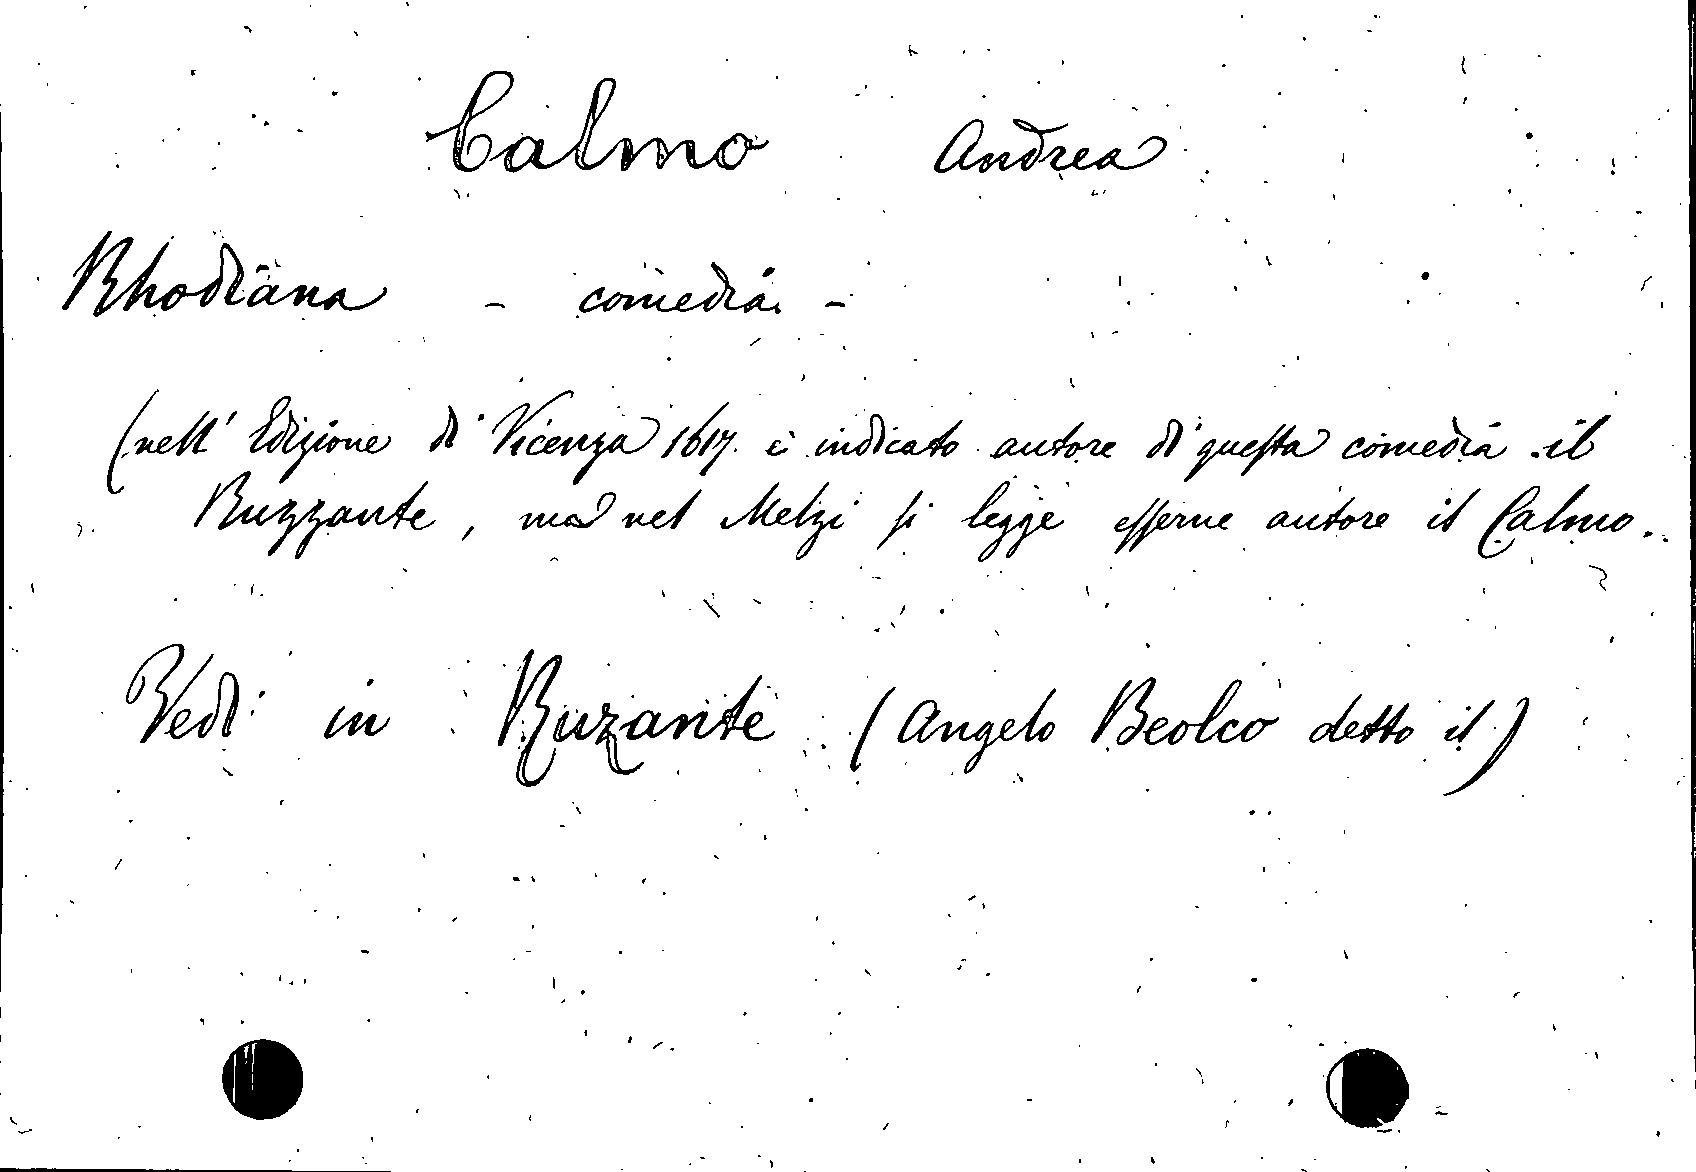 Calmo Andrea
Rhodiana - comedia -
(nell' Edizione di Vicenza 1617. è indicato autore di questa comedia il
Ruzzante, ma nel Melzi si legge esserne autore il Calmo.
Vedi in Ruzante (Angelo Beolco detto il)